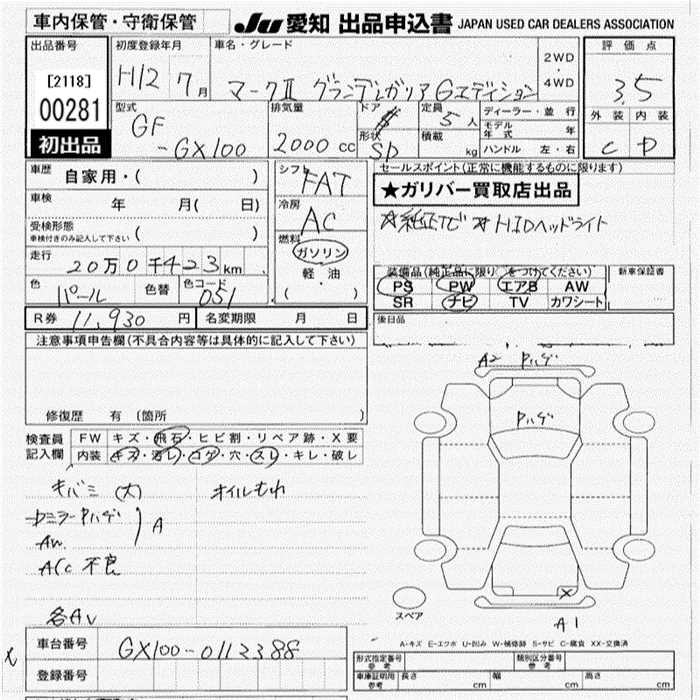 車内保管・守衛保管
JU 愛知 出品申込書 JAPAN USED CAR DEALERS ASSOCIATION
出品番号
[2118]
00281
初出品
初度登録年月
H12 7月
車名・グレード
マークⅡ グランデ
Gエディション
2WD
・
4WD
評価点
3.5
外装 内装
C D
型式
GF
-GX100
排気量
2000 cc
ドア
形状
SD
定員
5人
積載
kg
ディーラー・並行
モデル年式 年
ハンドル 左・右
車歴
自家用・( )
車検
年 月( 日)
受検形態
車検付きのみ記入して下さい ( )
走行
20万0千423km
色
パール
色替
色コード
051
シフト
FAT
冷房
AC
燃料
ガソリン
・
軽・油
( )
セールスポイント(正常に機能するものに限ります)
★ガリバー買取店出品
☆純正TV ☆HIDヘッドライト
装備品(純正品に限り○をつけてください)
PS PW エアB AW
SR ナビ TV カワシート
新車保証書
後日品
R券 11,930 円
名変期限 月 日
注意事項申告欄(不具合内容等は具体的に記入して下さい)
修復歴 有 (箇所 )
検査員
記入欄
FW キズ・飛石・ヒビ割・リペア跡・X要
内装 キズ・汚レ・コゲ・穴・スレ・キレ・破レ
キバミ (大)
オイルもれ
Pハゲ
AW
A
A/C 不良
各AV
A2 Pハゲ
Pハゲ
X
A1
スペア
A-キズ E-エクボ U-凹み W-補修跡 S-サビ C-腐食 XX-交換済
車台番号
GX100-0112388
登録番号
形式指定番号
参考
類別区分番号
参考
車庫証明用
参考
長さ cm
幅 cm
高さ cm